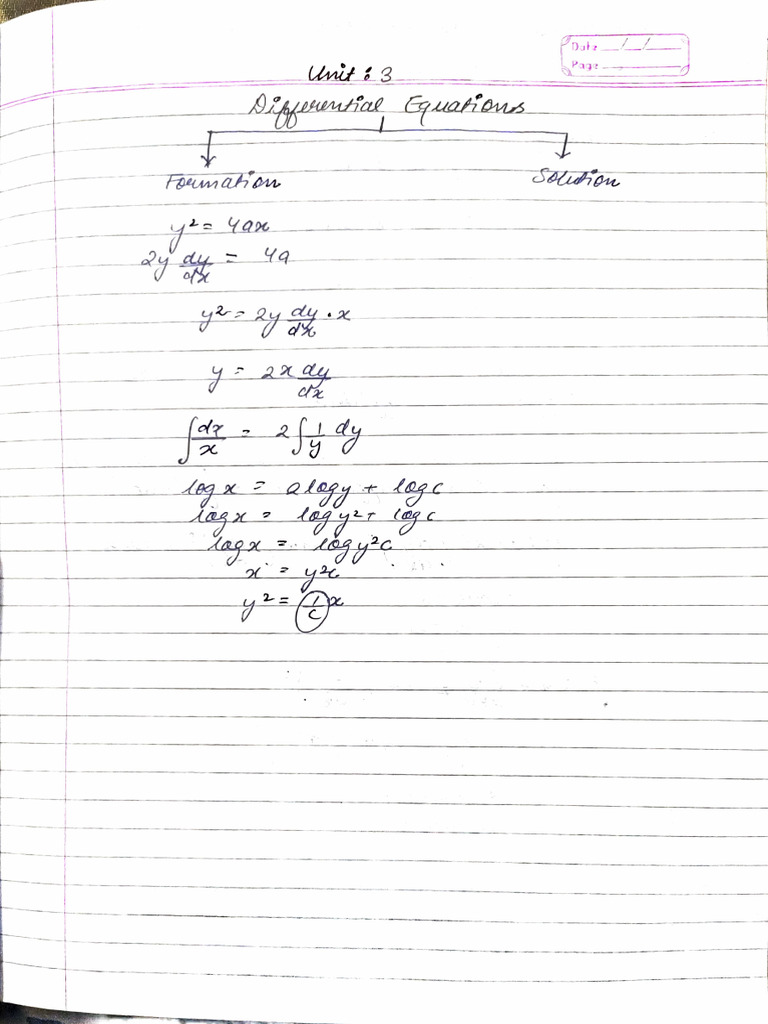 Date __/__/__
Page ______
Unit : 3
Differential Equations
Formation Solution
y² = 4ax
2y dy/dx = 4a
y² = 2y dy/dx · x
y = 2x dy/dx
∫ dx/x = 2 ∫ 1/y dy
log x = 2 log y + log c
log x = log y² + log c
log x = log y²c
x = y²c
y² = 1/c x